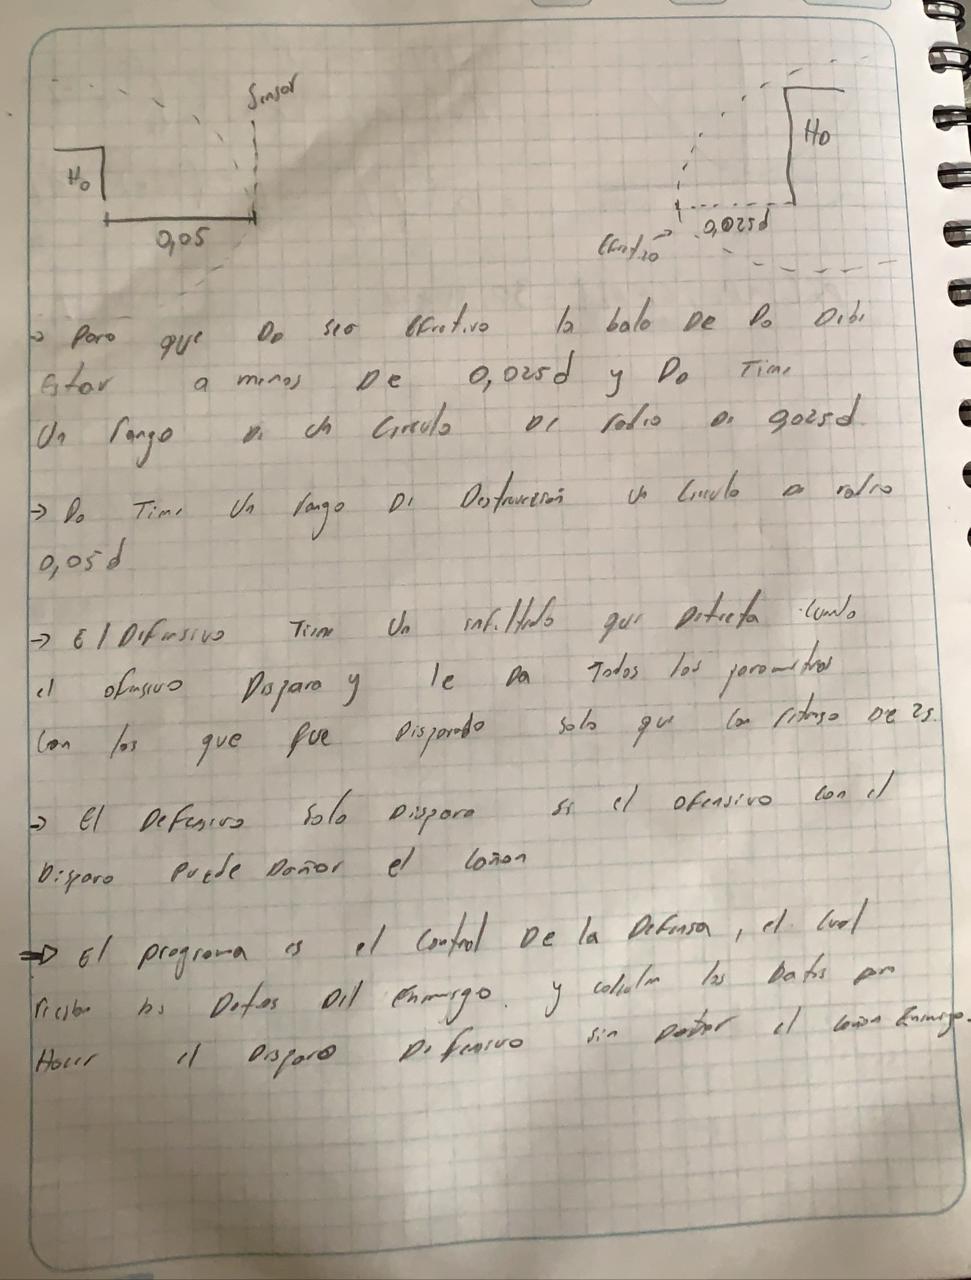 Sensor
Ho
0,05
HD
0,025d
Efectivo
→ Para que Do sea Efectivo la bala De Do Debe
Estar a menos De 0,025d y Do Tiene
Un rango De un Circulo De radio De 0,025d
→ Do Tiene Un rango De Destruccion un Circulo De radio
0,05d
→ El Defensivo Tiene Un infiltrado que Detecta cuando
el ofensivo Dispara y le Da Todos los parametros
Con los que fue Disparado solo que con retraso De 2s.
→ El Defensivo solo Dispara si el ofensivo con el
Disparo Puede Dañar el cañon
⇒ El programa es el Control De la Defensa, el cual
recibe los Datos Del Enemigo. y calcula los Datos para
Hacer el Disparo Defensivo sin Dañar el cañon Enemigo.